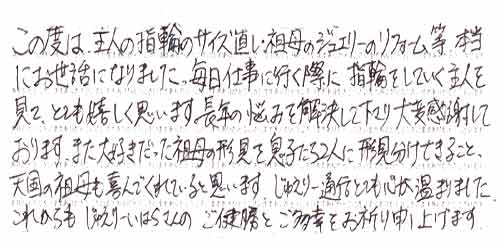 この度は、主人の指輪のサイズ直し・祖母のジュエリーのリフォーム等、本当
にお世話になりました。毎日仕事に行く際に指輪をしていく主人を
見て、とても嬉しく思います。長年の悩みを解決して下さり大変感謝して
おります。また大好きだった祖母の形見を息子たち2人に形見分けできること、
天国の祖母も喜んでくれていると思います。じゅえりー通信とても心が温まりました。
これからもじゅえりーいはらさんのご健勝とご多幸をお祈り申し上げます。